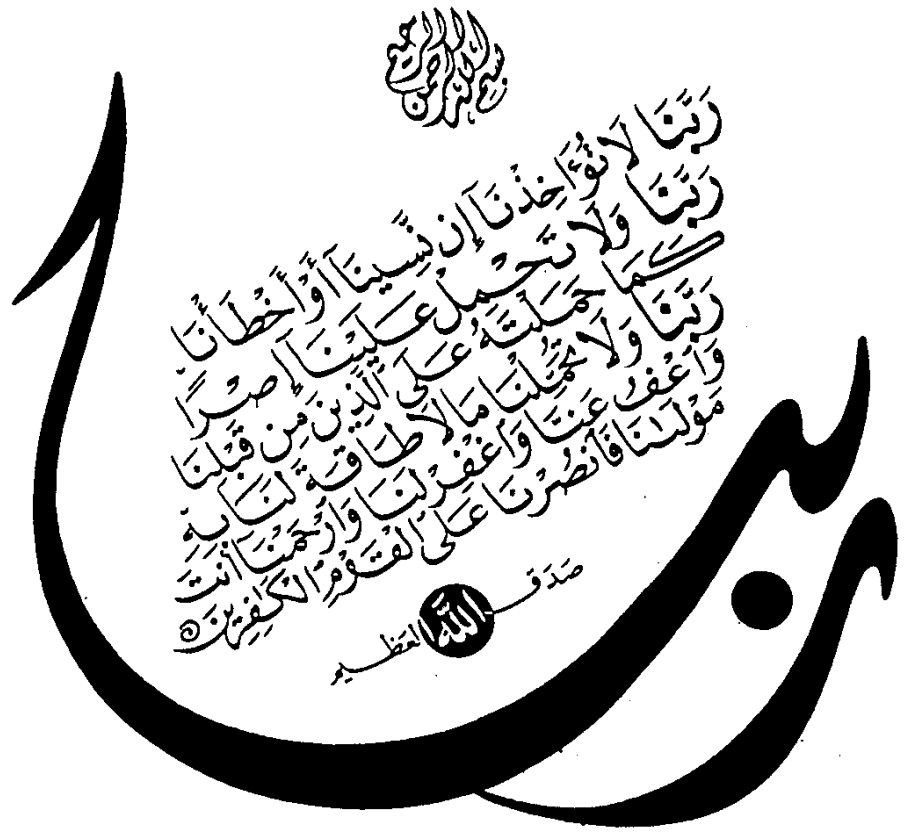 بسم الله الرحمن الرحيم
رَبَّنَا لَا تُؤَاخِذْنَآ إِن نَّسِينَآ أَوْ أَخْطَأْنَا
رَبَّنَا وَلَا تَحْمِلْ عَلَيْنَآ إِصْرًا
كَمَا حَمَلْتَهُ عَلَى الَّذِينَ مِن قَبْلِنَا
رَبَّنَا وَلَا تُحَمِّلْنَا مَا لَا طَاقَةَ لَنَا بِهِ
وَاعْفُ عَنَّا وَاغْفِرْ لَنَا وَارْحَمْنَا أَنتَ
مَوْلَىٰنَا فَانصُرْنَا عَلَى الْقَوْمِ الْكَٰفِرِينَ
صَدَقَ اللّٰه العَظِيم
ربنا